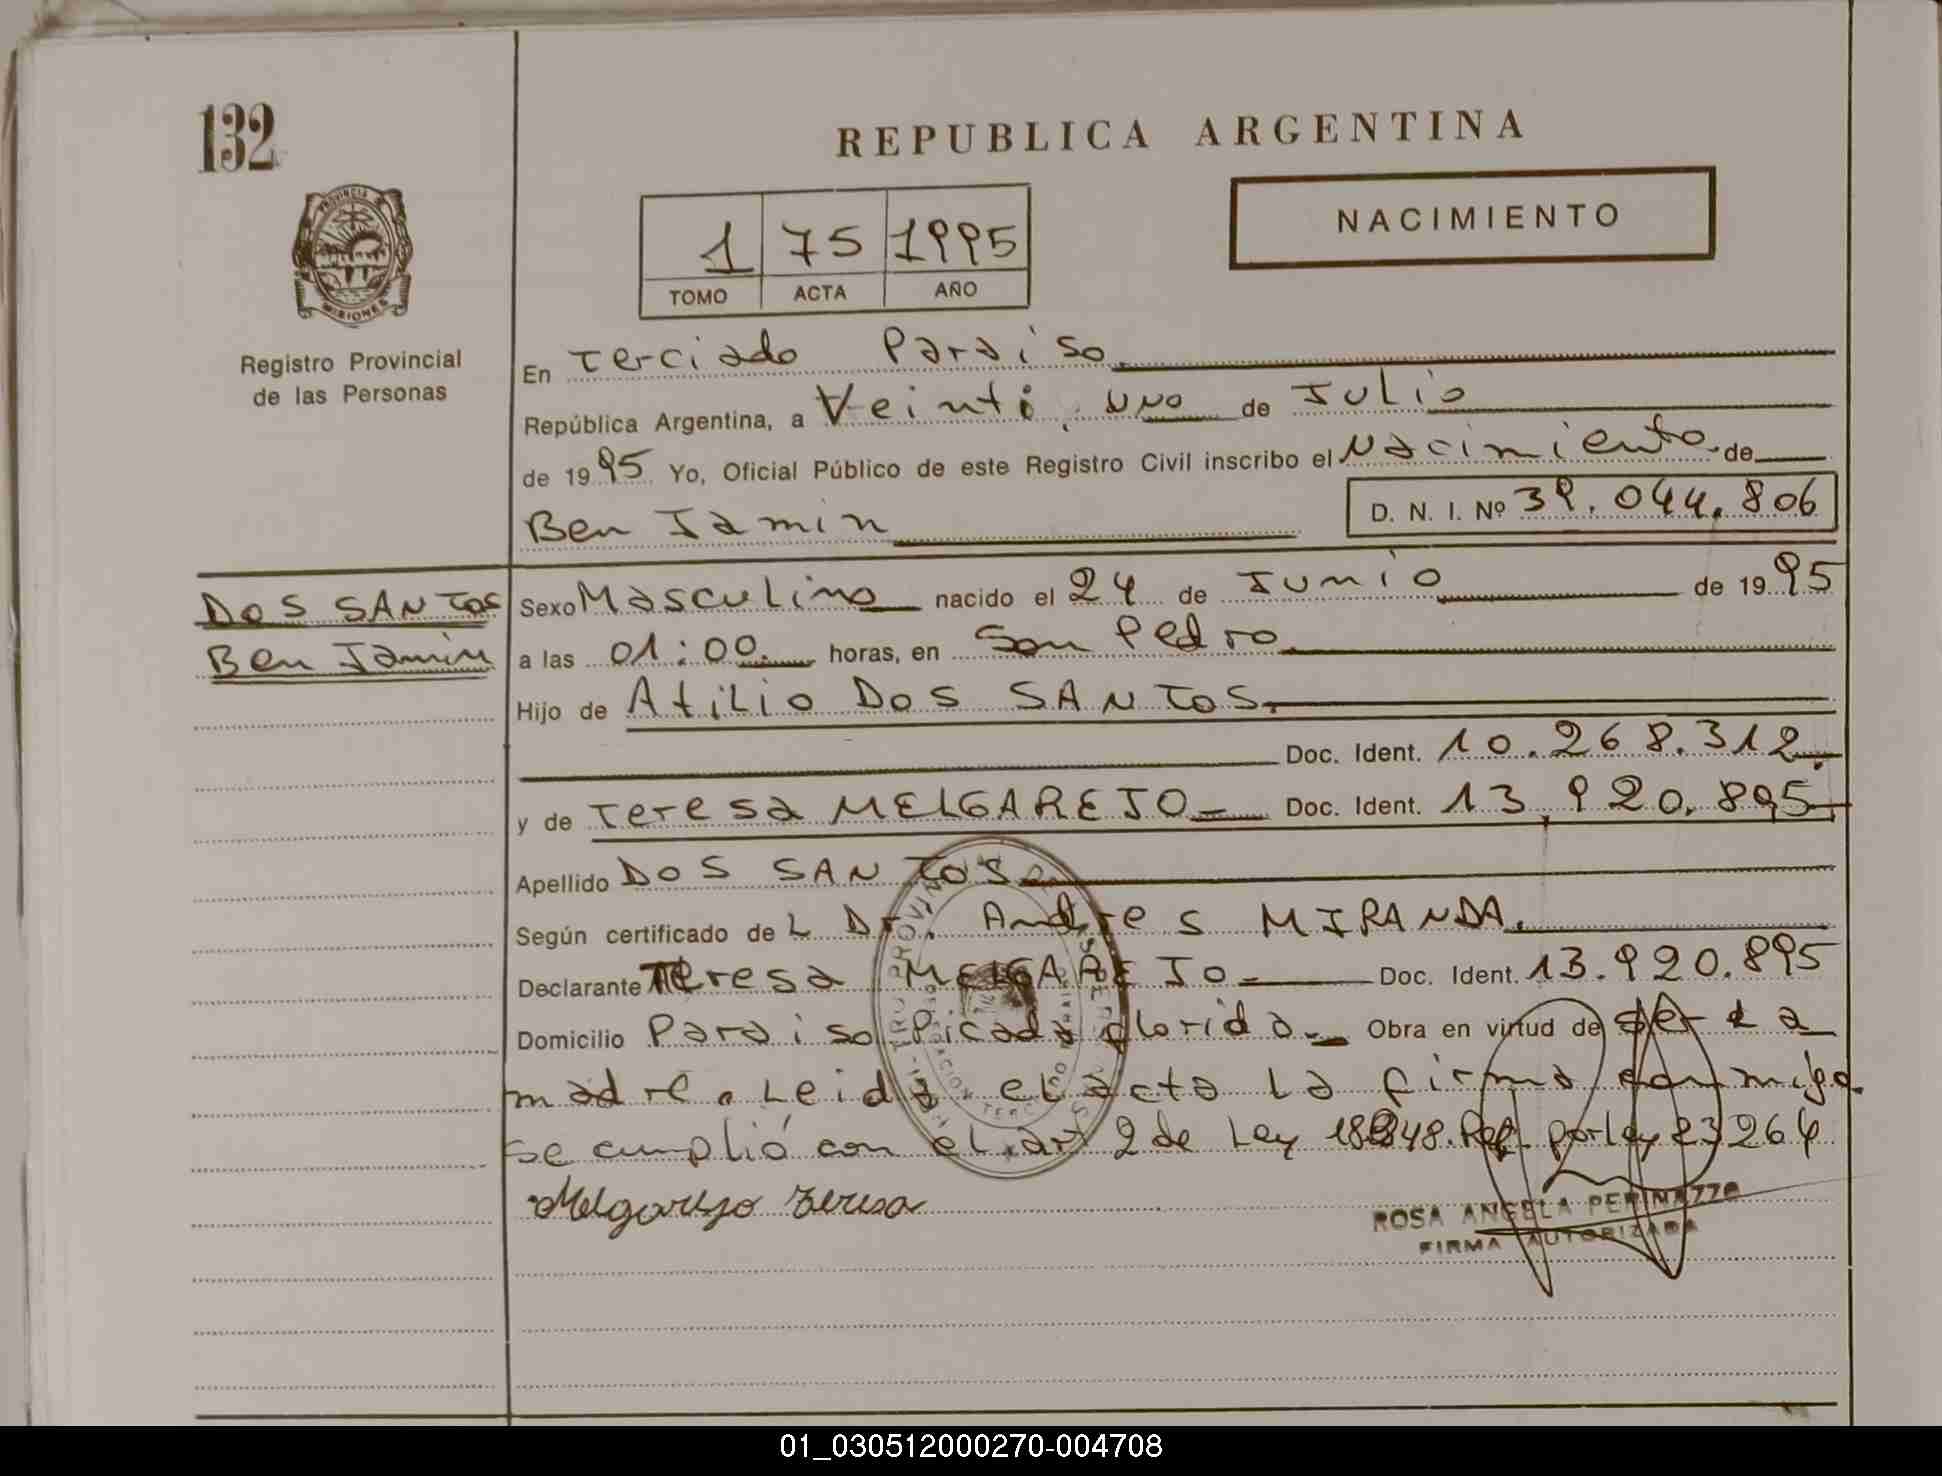 132
REPUBLICA ARGENTINA
NACIMIENTO
PROVINCIA
MISIONES
1 75 1995
TOMO ACTA AÑO
Registro Provincial
de las Personas
En Terciado Paraiso.
República Argentina, a Veinti uno de Julio
de 1995 Yo, Oficial Público de este Registro Civil inscribo el Nacimiento de
Ben Jamin D. N. I. Nº 39.044.806
DOS SANTOS
Ben Jamin
Sexo Masculino nacido el 24 de Junio de 1995
a las 01:00. horas, en San Pedro
Hijo de Atilio DOS SANTOS.
Doc. Ident. 10.268.312.
y de Teresa MELGAREJO Doc. Ident. 13.920.895
Apellido DOS SANTOS
Según certificado de L Dr. Andres MIRANDA.
Declarante Teresa MELGAREJO Doc. Ident. 13.920.895
Domicilio Paraiso Picada Florida. Obra en virtud de ser la
madre. Leida el acta la firma conmigo.
se cumplió con el art 2 de Ley 18248. por ley 23264
Melgarejo Teresa
ROSA ANGELA PERINAZZO
FIRMA AUTORIZADA
01_030512000270-004708